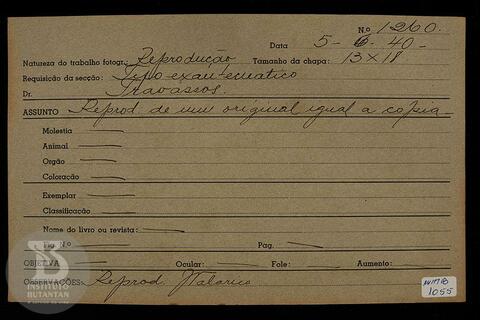 N.o 1260.
Data 5-6-40-
Natureza do trabalho fotogr.: Reprodução Tamanho da chapa: 13 x 18
Requisição da secção: Tifo-exantematico
Dr. Travassos.
ASSUNTO Reprod de um original igual a copia
Molestia
Animal
Orgão
Coloração
Exemplar
Classificação
Nome do livro ou revista:
Fig. N.o Pag.
OBJETIVA Ocular: Fole: Aumento:
OBSERVAÇÕES: Reprod. J Talarico
1055
INSTITUTO
BUTANTAN